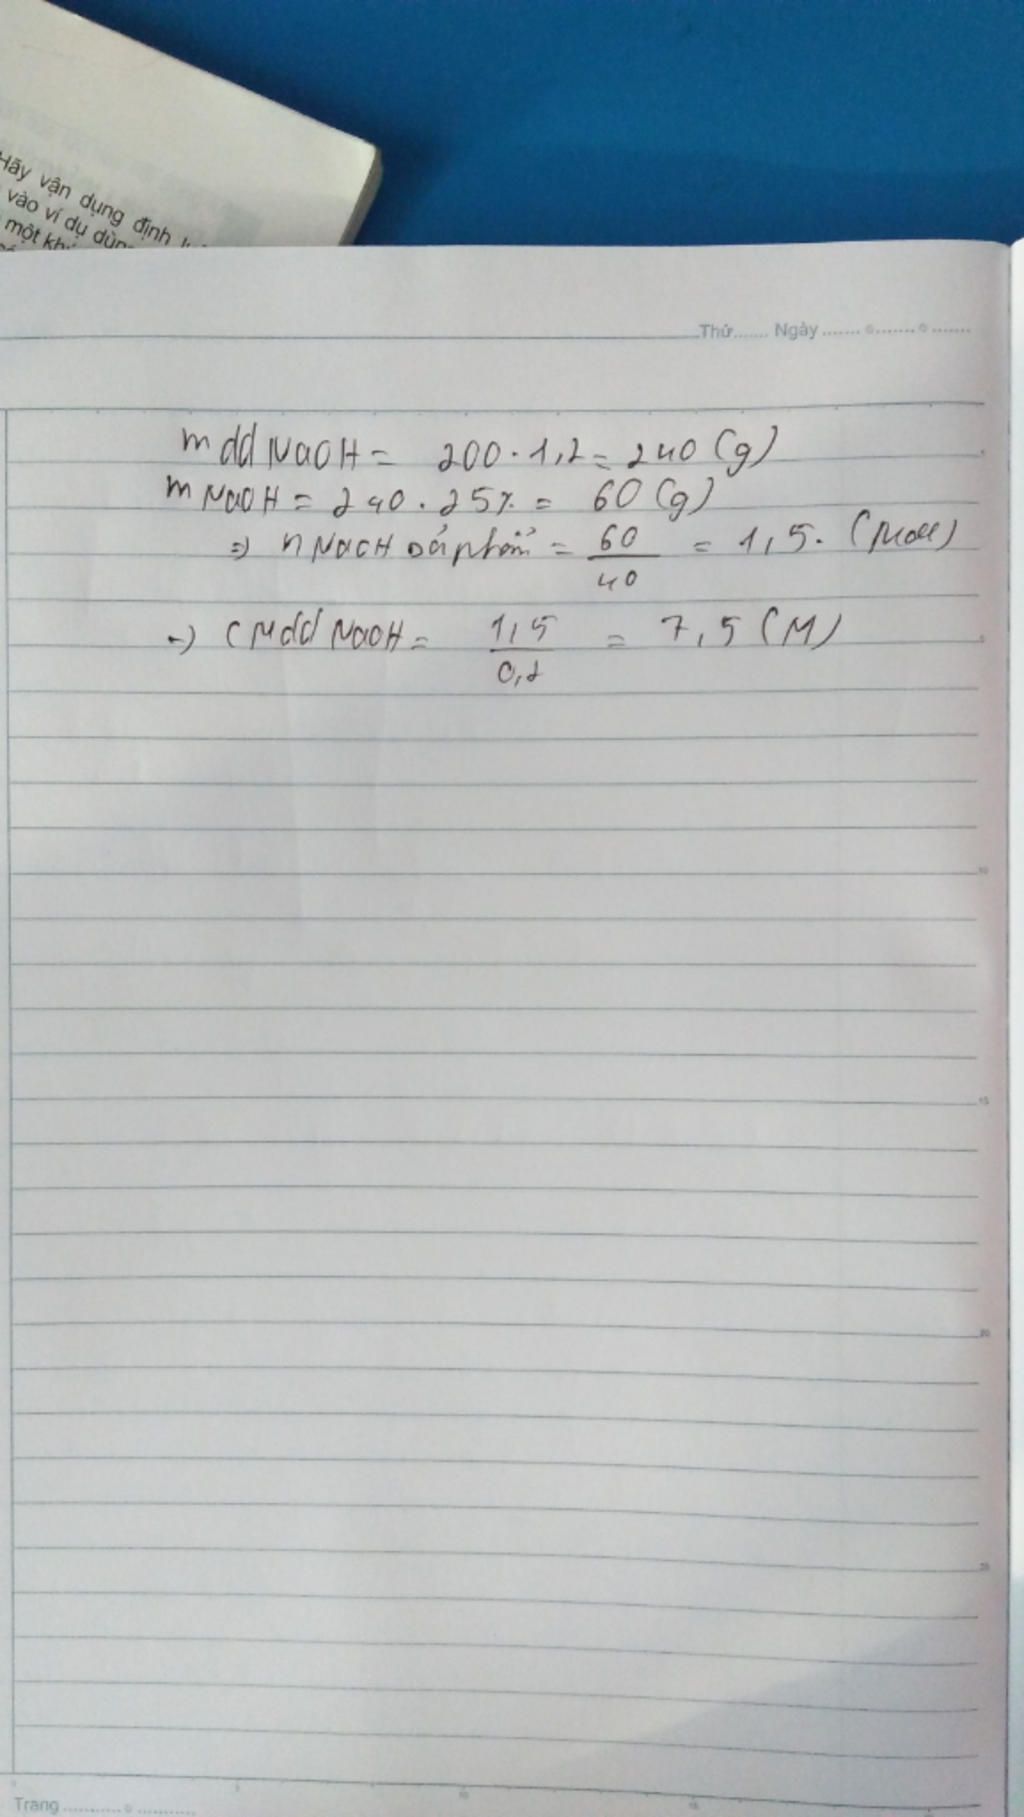 Hãy vận dụng định
vào ví dụ dùng
một
Thứ....... Ngày ....... ....... .......
m dd NaOH = 200 . 1,2 = 240 (g)
m NaOH = 240 . 25% = 60 (g)
=> n NaOH = 60/40 = 1,5. (Mol)
-> CM dd NaOH = 1,5/0,2 = 7,5 (M)
5
10
15
20
25
5
10
15
Trang